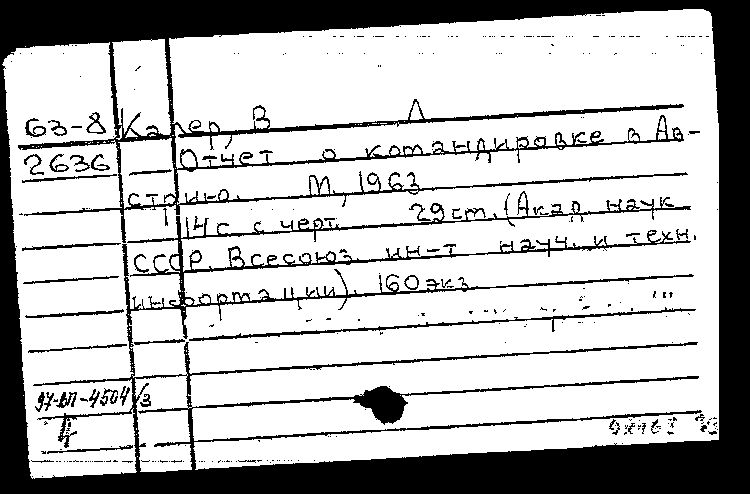 63-8 Калер, В Л
2636 Отчет о командировке в Ав-
стрию. М., 1963
14 с. с черт. 29 cm. (Акад. наук
СССР. Всесоюз. ин-т науч. и техн.
информации). 160 экз.
97-ВП-4504/3
4